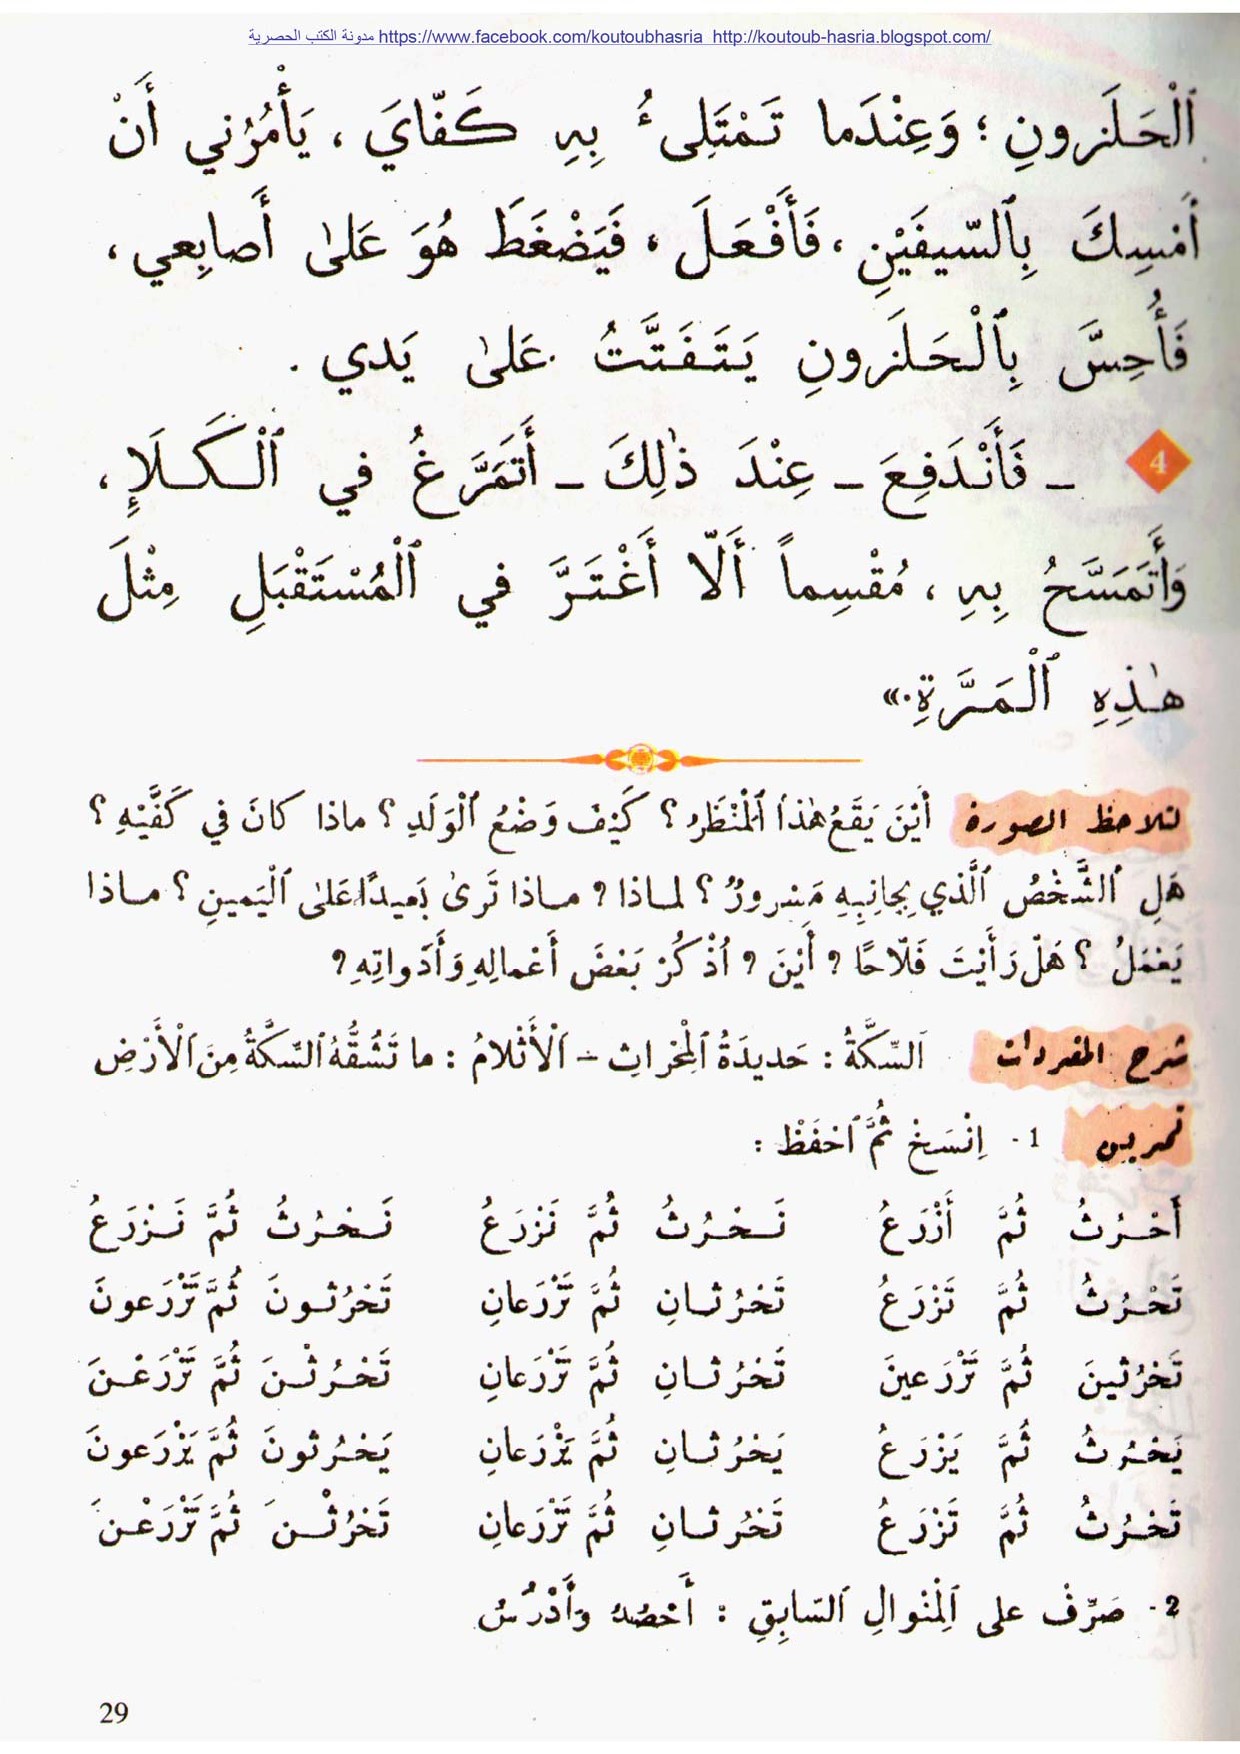 مدونة الكتب الحصرية https://www.facebook.com/koutoubhasria http://koutoub-hasria.blogspot.com/
ٱلْحَلَزونِ ؛ وَعِنْدَما تَمْتَلِىءُ بِهِ كَفّايَ ، يَأْمُرُني أَنْ
أُمْسِكَ بِٱلسّيفَيْنِ ، فَأَفْعَلَ ، فَيَضْغَطَ هُوَ عَلىٰ أَصابِعي ،
فَأُحِسَّ بِٱلْحَلَزونِ يَتَفَتَّتُ عَلىٰ يَدي .
4 ـ فَأَنْدَفِعَ ـ عِنْدَ ذٰلِكَ ـ أَتَمَرَّغُ في ٱلْكَلَإِ ،
وَأَتَمَسَّحُ بِهِ ، مُقْسِماً أَلّا أَغْتَرَّ في ٱلْمُسْتَقْبَلِ مِثْلَ
هٰذِهِ ٱلْمَرَّةِ.»
لنلاحظ الصورة أَيْنَ يَقَعُ هٰذا ٱلْمَنْظَرُ ؟ كَيْفَ وَضْعُ ٱلْوَلَدِ ؟ ماذا كانَ في كَفَّيْهِ ؟
هَلِ ٱلشَّخْصُ ٱلَّذي بِجانِبِهِ مَسْرورٌ ؟ لماذا ؟ ماذا تَرىٰ بَعيدًا عَلىٰ ٱلْيَمينِ ؟ ماذا
يَعْمَلُ ؟ هَلْ رَأَيْتَ فَلّاحًا ؟ أَيْنَ ؟ اُذْكُرْ بَعْضَ أَعْمالِهِ وَأَدَواتِهِ ؟
شرح المفردات اَلسِّكَّةُ : حَديدَةُ ٱلْمِحْراثِ – اَلْأَثْلامُ : ما تَشُقُّهُ ٱلسِّكَّةُ مِنَ ٱلْأَرْضِ
تمرين 1 - اِنْسَخْ ثُمَّ ٱحْفَظْ :
أَحْرُثُ ثُمَّ أَزْرَعُ نَحْرُثُ ثُمَّ نَزْرَعُ نَحْرُثُ ثُمَّ نَزْرَعُ
تَحْرُثُ ثُمَّ تَزْرَعُ تَحْرُثانِ ثُمَّ تَزْرَعانِ تَحْرُثونَ ثُمَّ تَزْرَعونَ
تَحْرُثينَ ثُمَّ تَزْرَعينَ تَحْرُثانِ ثُمَّ تَزْرَعانِ تَحْرُثْنَ ثُمَّ تَزْرَعْنَ
يَحْرُثُ ثُمَّ يَزْرَعُ يَحْرُثانِ ثُمَّ يَزْرَعانِ يَحْرُثونَ ثُمَّ يَزْرَعونَ
تَحْرُثُ ثُمَّ تَزْرَعُ تَحْرُثانِ ثُمَّ تَزْرَعانِ تَحْرُثْنَ ثُمَّ تَزْرَعْنَ
2 - صَرِّفْ على ٱلْمِنْوالِ ٱلسّابِقِ : أَحْصُدُ وَأَدْرُسُ
29